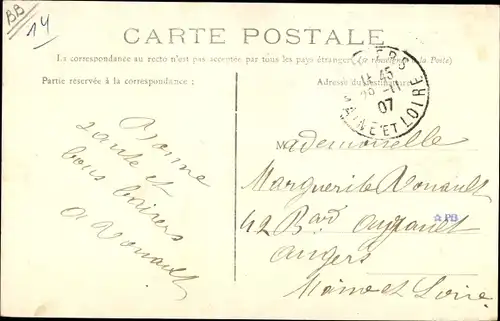 BB
14
CARTE POSTALE
La correspondance au recto n'est pas acceptée par tous les pays étrangers (se renseigner à la Poste)
Partie réservée à la correspondance:
Adresse du destinataire
ERS
11 45
28 -11
07
MAINE ET LOIRE
Bonne
santé et
bons baisers
A Rouault
Mademoiselle
Marguerite Rouault
42 Bard Ayrault
PB
Angers
Maine et Loire